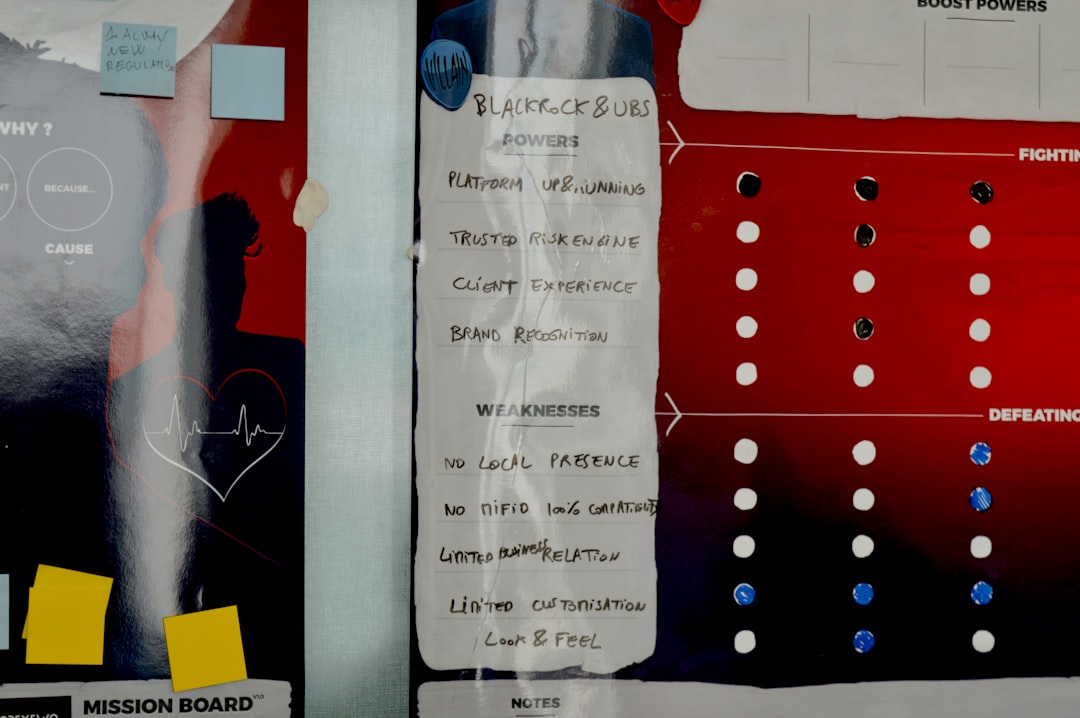 1 ALWAY
NEW
REGULATION
WHY ?
NT
BECAUSE...
CAUSE
MISSION BOARD V1.0
VILLAIN
BLACKROCK & UBS
POWERS
PLATFORM UP & RUNNING
TRUSTED RISK ENGINE
CLIENT EXPERIENCE
BRAND RECOGNITION
WEAKNESSES
NO LOCAL PRESENCE
NO MIFID 100% COMPATIBILITY
LIMITED BUSINESS RELATION
LIMITED CUSTOMISATION
LOOK & FEEL
NOTES
BOOST POWERS
FIGHTIN
DEFEATING